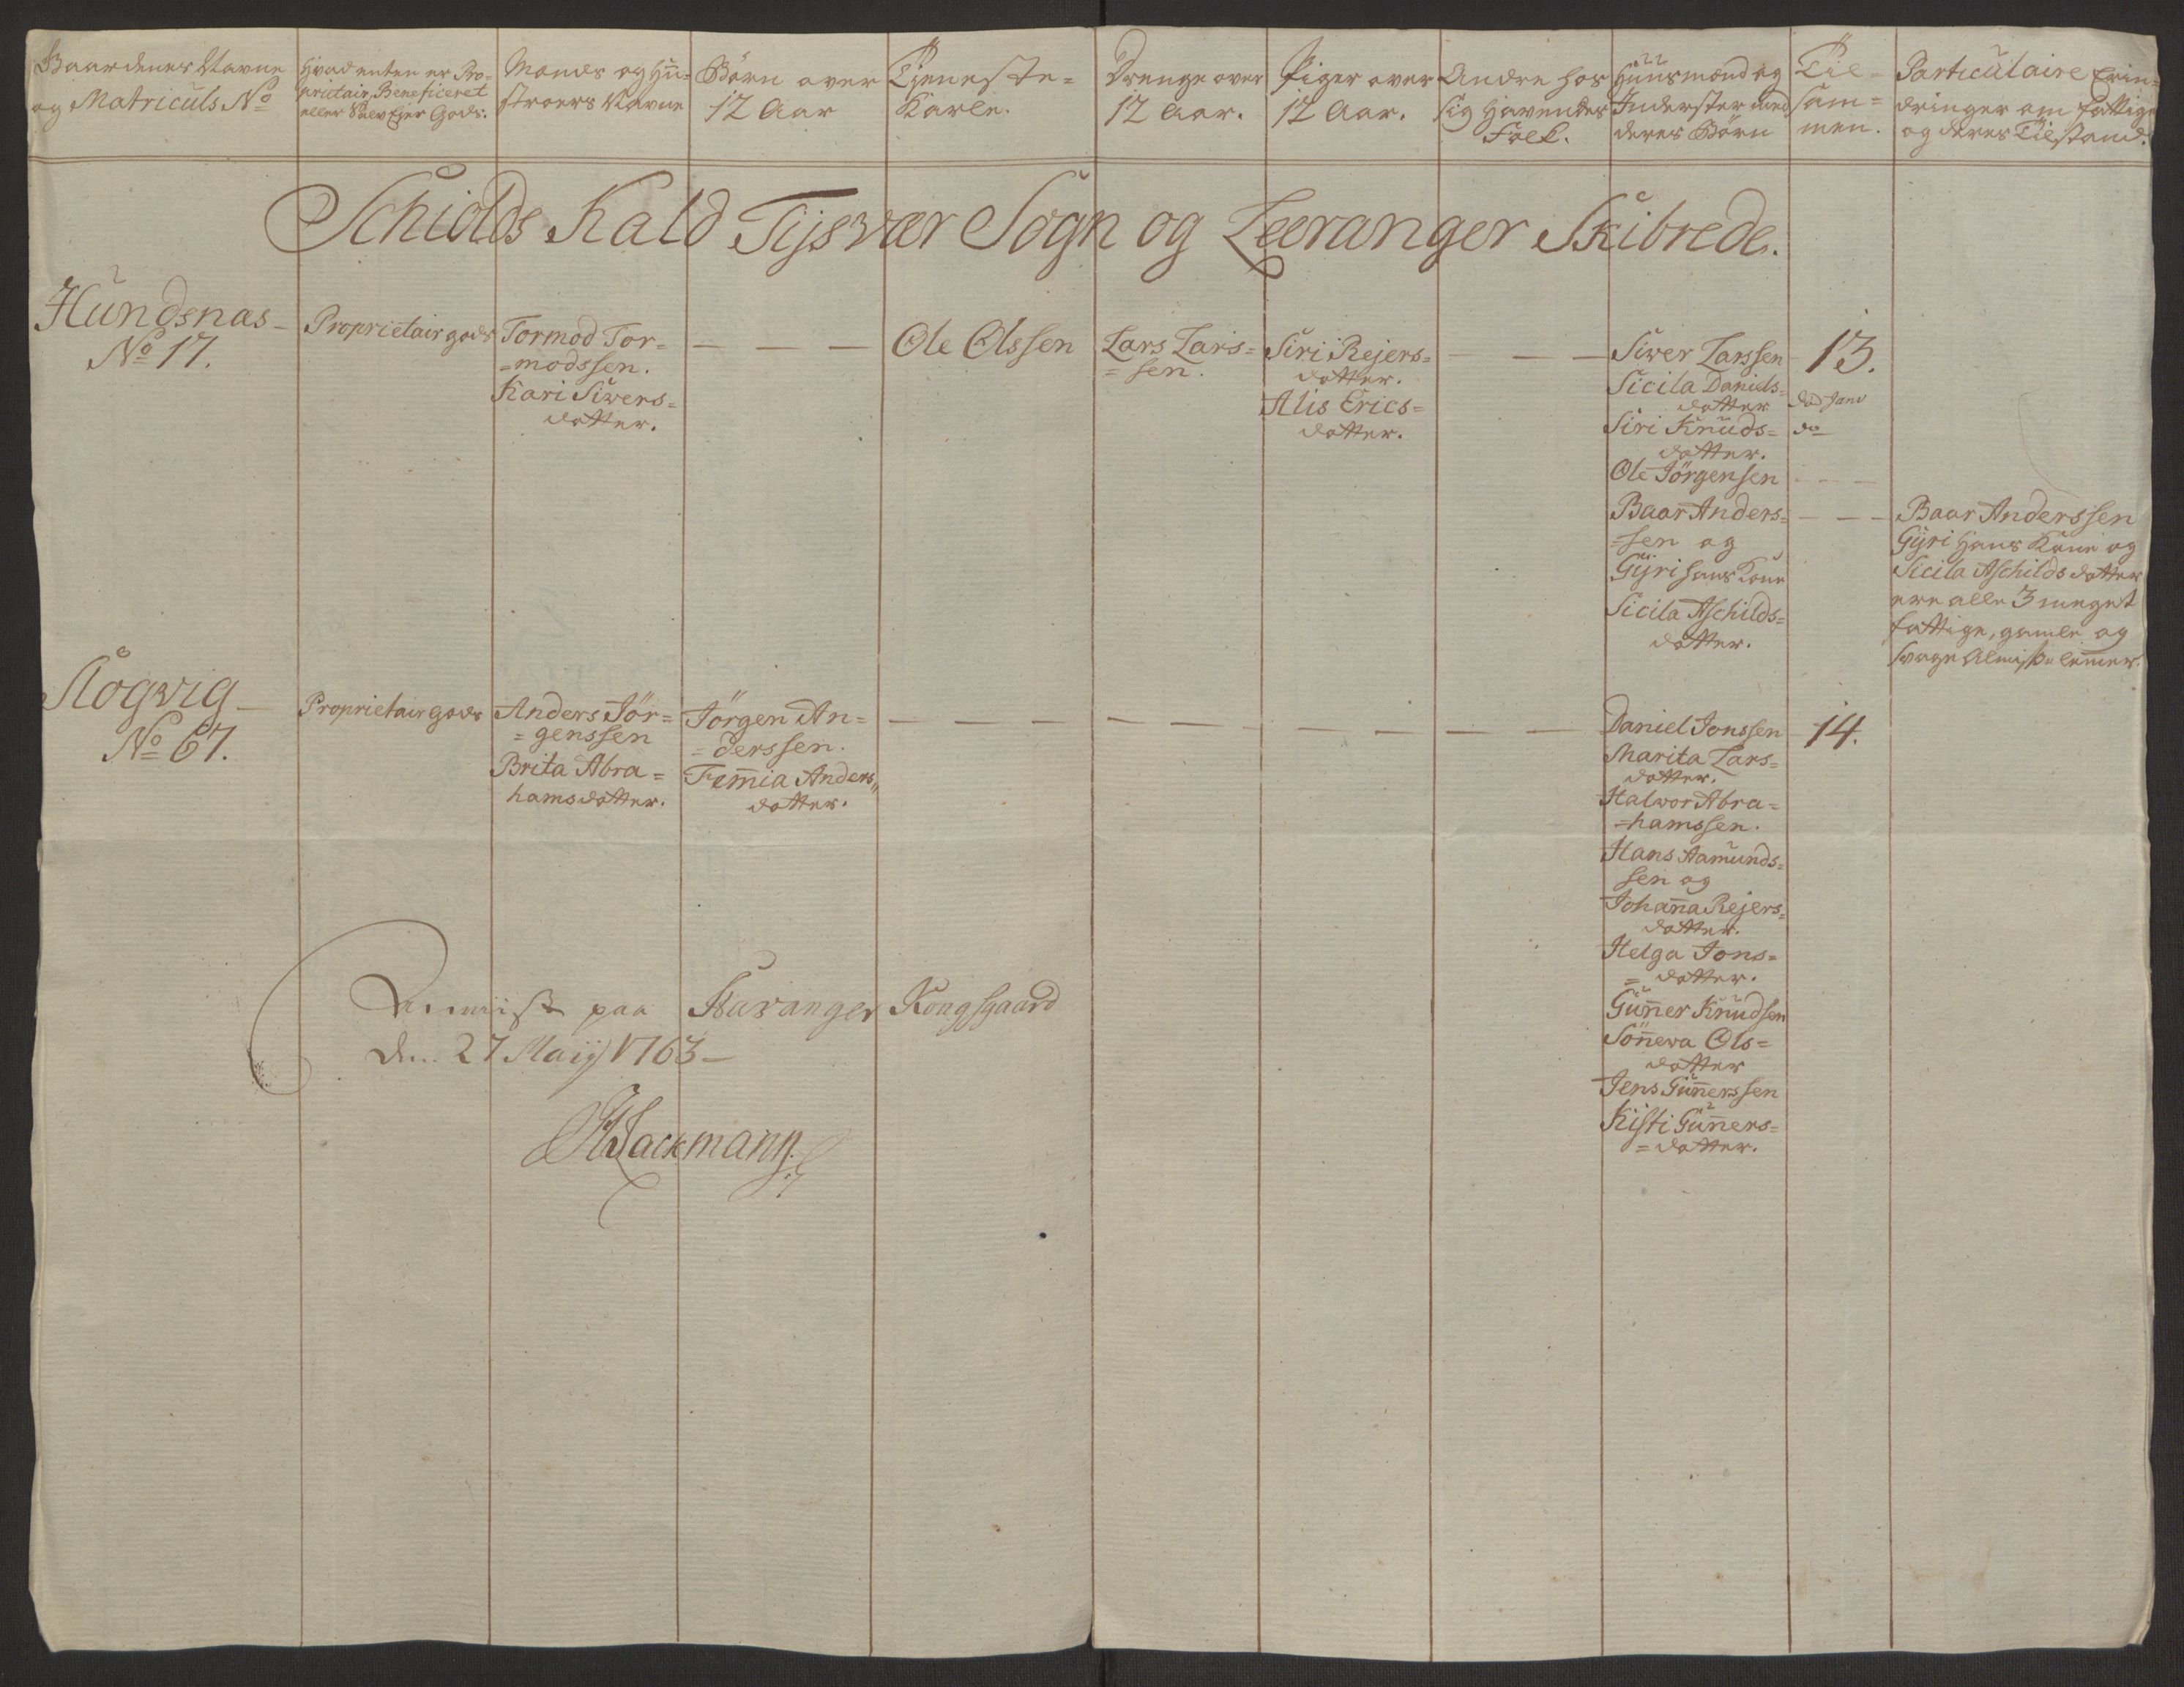 Gaardenes Navne
og Matriculs No
Hvad enten er Pro-
prietair, Beneficeret
eller Selv Ejer Gods.
Mænds og Hu-
stroers Navne
Børn over
12 Aar
Tieneste=
Karle.
Drenge over
12 Aar.
Piger over
12 Aar.
Andre hos
sig Havendes
Folk.
Huusmænd og
Inderster med
deres Børn
Til=
sam=
men.
Particulaire Erin=
dringer om fattige
og deres Tilstand.
Schiolds Kald Tijsvær Sogn og Leeranger Skibrede.
Hundsnas
No 17.
Proprietair gods
Tormod Tor=
=modssen.
Kari Siwers=
dotter.
Ole Olssen
Lars Lars=
=sen.
Siri Rejers=
dotter.
Alis Erics=
dotter.
Siwer Larssen
Sicila Daniels=
dotter
Siri Knuds=
dotter.
Ole Jörgensen
Baar Anders=
=sen og
Gÿri hans Kone
Sicila Aschilds=
dotter.
13.
do
Baar Anderssen
Gÿri hans Kone og
Sicila Aschilds dotter
ere alle 3 meget
fattige, gamle og
svage Almisse lemmer.
Slogvig
No 67.
Proprietair gods
Anders Jör=
=genssen
Brita Abra=
hamsdotter.
Jörgen An=
=derssen.
Fem̅ia Anders
dotter.
Daniel Jonssen
Marita Lars=
dotter.
Halwor Abra=
=hamssen.
Hans Aamunds=
sen og
Johan̅a Rejers=
dotter.
Helga Jons=
=dotter.
Gun̅er Knudsen
Sön̅ewa Ols=
dotter
Jens Gun̅erssen
Kisti Gun̅ers=
=dotter.
14.
paa Stavanger Kongsgaard
den 27 Maij 1763